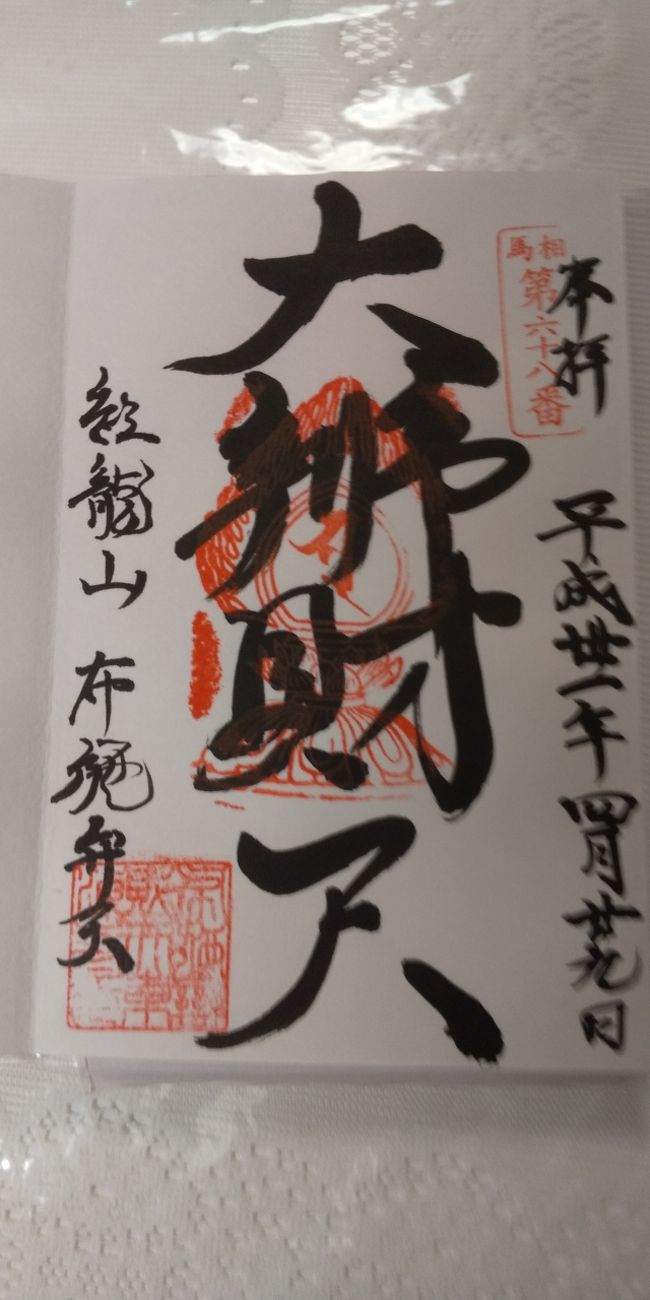 奉拝
相馬
第六十八番
平成卅一年四月廿九日
大辨財天
紅龍山 布施弁天